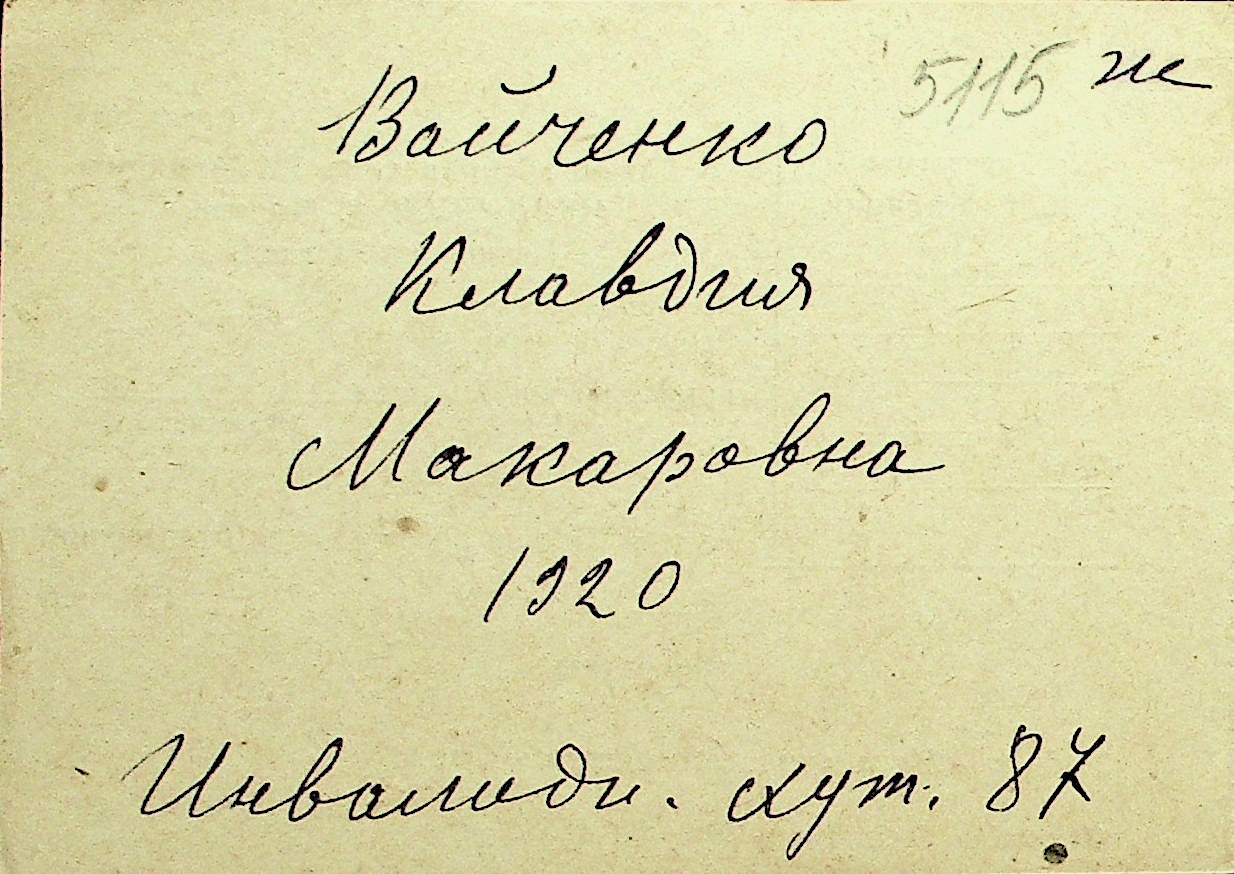 5115 ж
Войченко
Клавдия
Макаровна
1920
Инвалидн. хут. 87